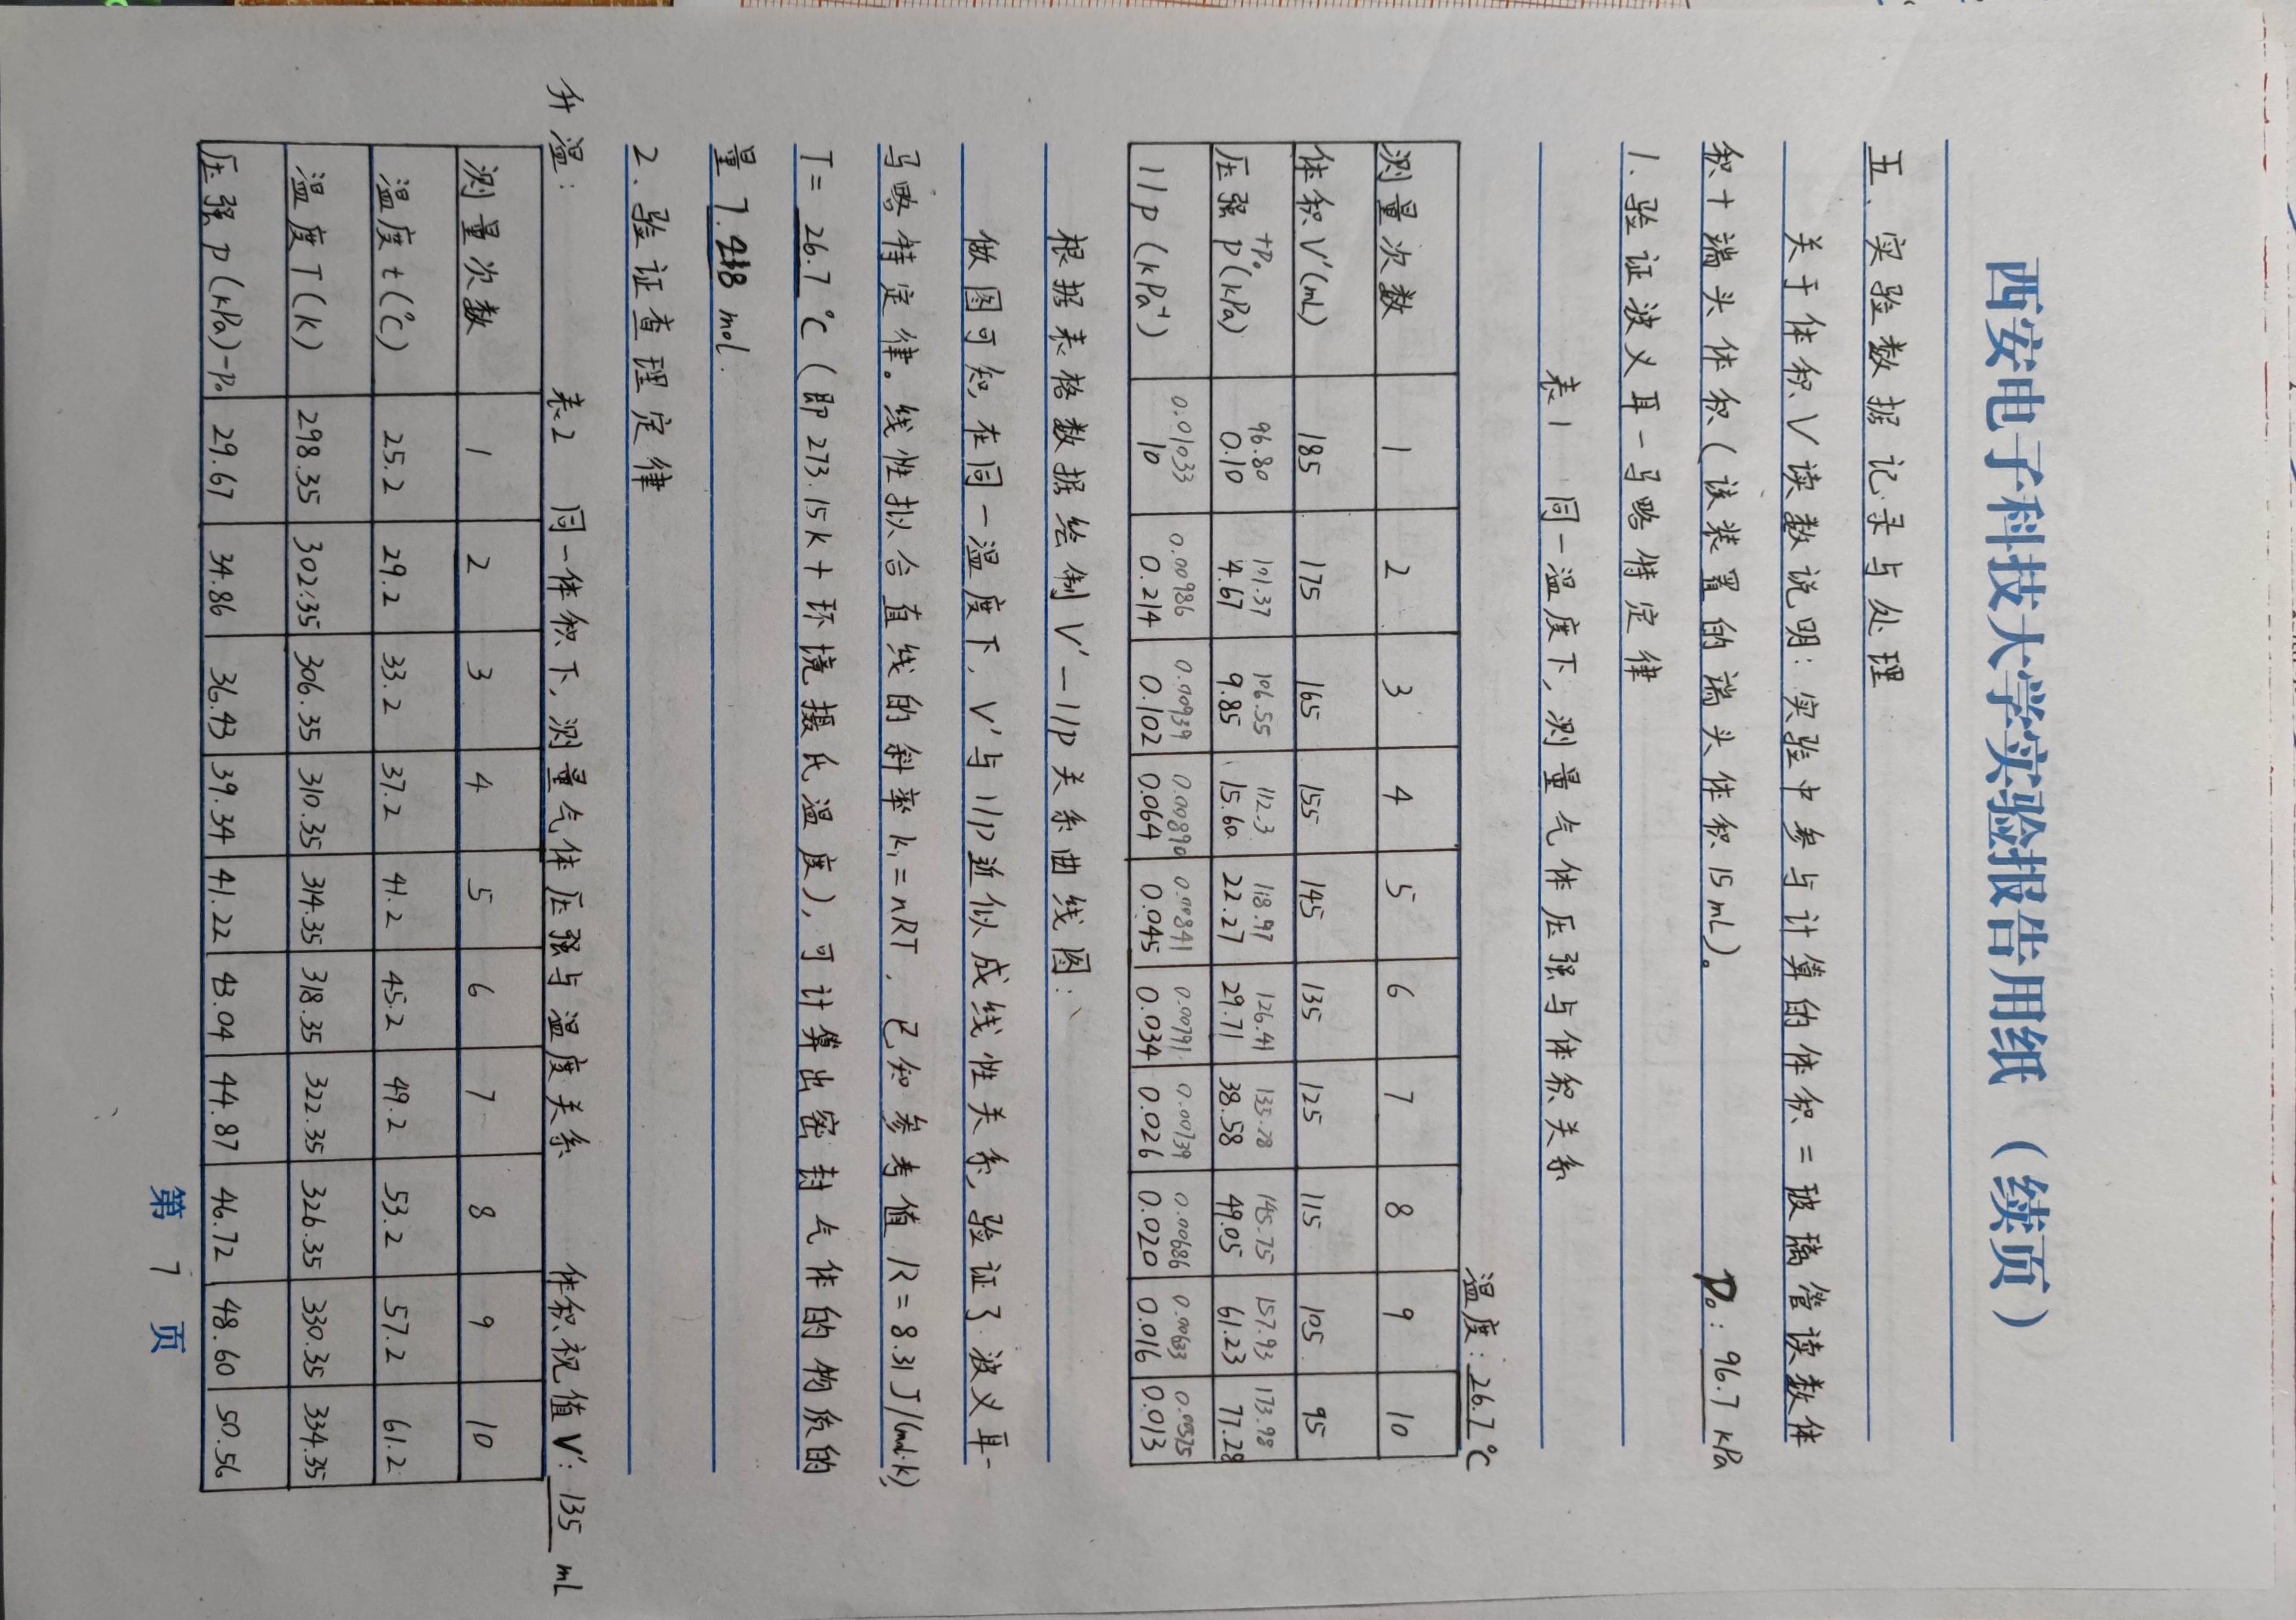 西安电子科技大学实验报告用纸 （续页）
五、实验数据记录与处理
关于体积V读数说明：实验中参与计算的体积=玻璃管读数体
积+端头体积(该装置的端头体积15mL)。 P₀: 96.7 kPa
1. 验证波义耳-马略特定律
表1 同一温度下,测量气体压强与体积关系
温度: 26.7℃
测量次数 1 2 3 4 5 6 7 8 9 10
体积V'(mL) 185 175 165 155 145 135 125 115 105 95
+P₀ 96.80 101.37 106.55 112.3 118.97 126.41 135.28 145.75 157.93 173.98
压强 p(kPa) 0.10 4.67 9.85 15.60 22.27 29.71 38.58 49.05 61.23 77.28
0.01033 0.00986 0.00939 0.00890 0.00841 0.00791 0.00739 0.00686 0.00633 0.00575
1/p (kPa⁻¹) 10 0.214 0.102 0.064 0.045 0.034 0.026 0.020 0.016 0.013
根据表格数据绘制V'-1/p关系曲线图:
做图可知,在同一温度下,V'与1/p近似成线性关系,验证了波义耳-
马略特定律。线性拟合直线的斜率k₁=nRT,已知参考值R=8.31J/(mol·k),
T= 26.7 ℃ (即273.15K+环境摄氏温度),可计算出密封气体的物质的
量 mol.
2. 验证查理定律
升温: 表2 同一体积下,测量气体压强与温度关系 体积视值V': 135 mL
测量次数 1 2 3 4 5 6 7 8 9 10
温度t(℃) 25.2 29.2 33.2 37.2 41.2 45.2 49.2 53.2 57.2 61.2
温度T(K) 298.35 302.35 306.35 310.35 314.35 318.35 322.35 326.35 330.35 334.35
压强p(kPa)-P₀ 29.67 34.86 36.43 39.34 41.22 43.04 44.87 46.72 48.60 50.56
第 7 页